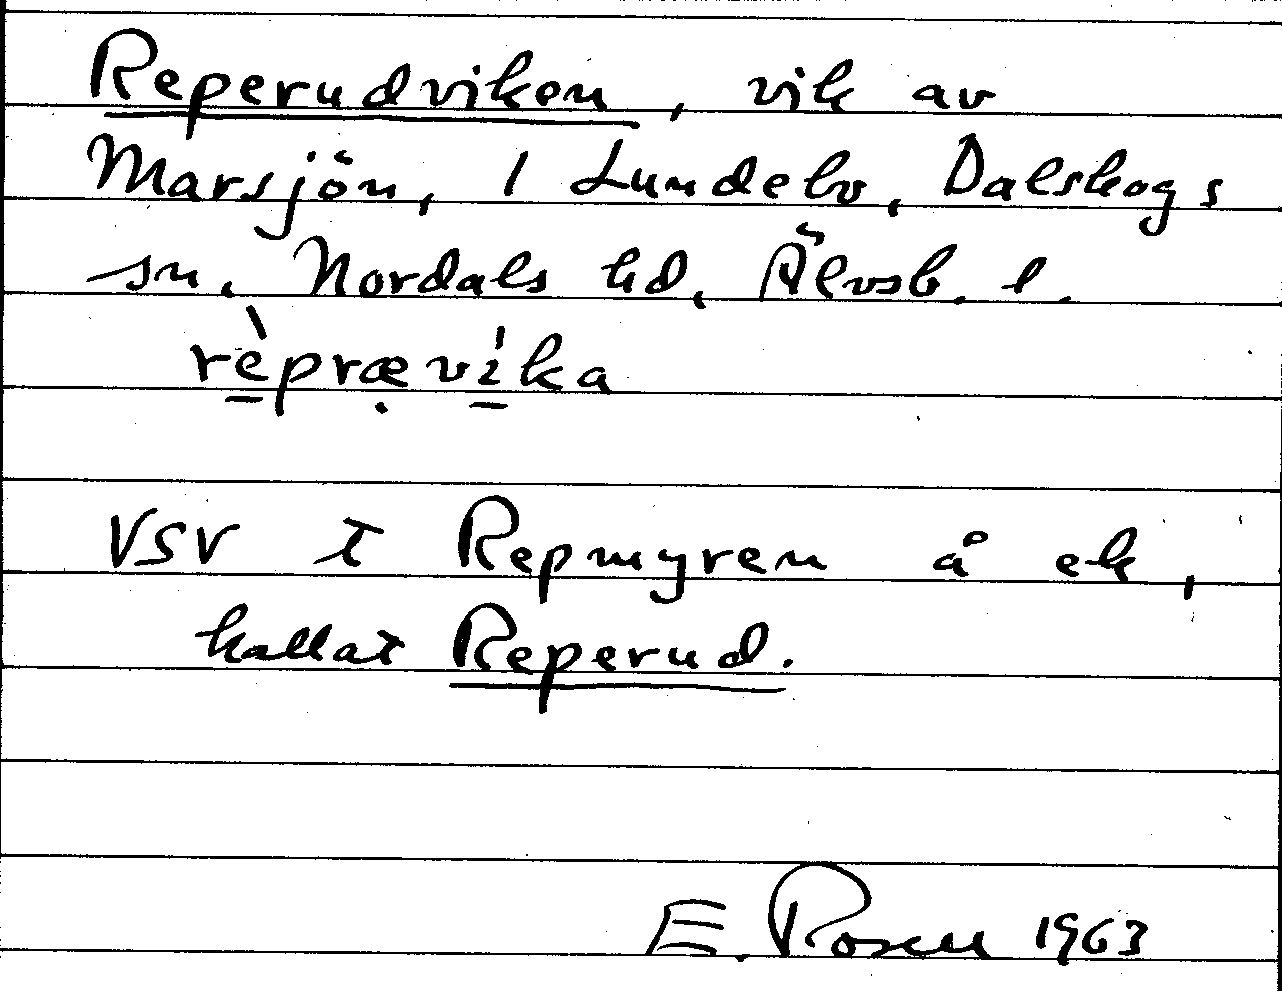 Reperudviken, vik av
Marsjön, 1 Lundebo, Dalskogs
sn. Nordals hd, Älvsb. l.
rèpræví̱ka
VSV t Repmyren å ek,
kallat Reperud.
E. Rosen 1963